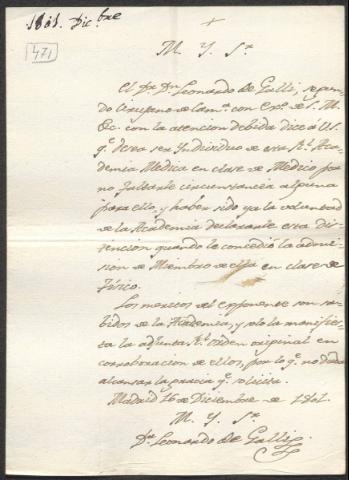 1801. Dic.bre
471
+
M. Y. Sr
El Dr. Dn. Leonardo de Galli, segun-
do Cirujano de Cam.a con Exo. de S. M.
&c. con la atencion debida dice á US.
q.e desea ser Yndividuo de esa R.l Aca-
demia Medica en clase de Medico por
no faltarle circunstancia alguna
para ello, y haber sido ya la voluntad
de la Academia declararle esta dis-
tincion quando le concedió la admi-
sion de Miembro de ella en clase de
Físico.
Los meritos del exponente son sa-
bidos de la Academia, y solo la manifies-
ta la adjunta R.l orden original en
corroboracion de ellos, por lo q.e no duda
alcanzar la gracia q.e solicita.
Madrid 16 de Diciembre de 1801.
M. Y. Sr
Dr. Leonardo de Galli